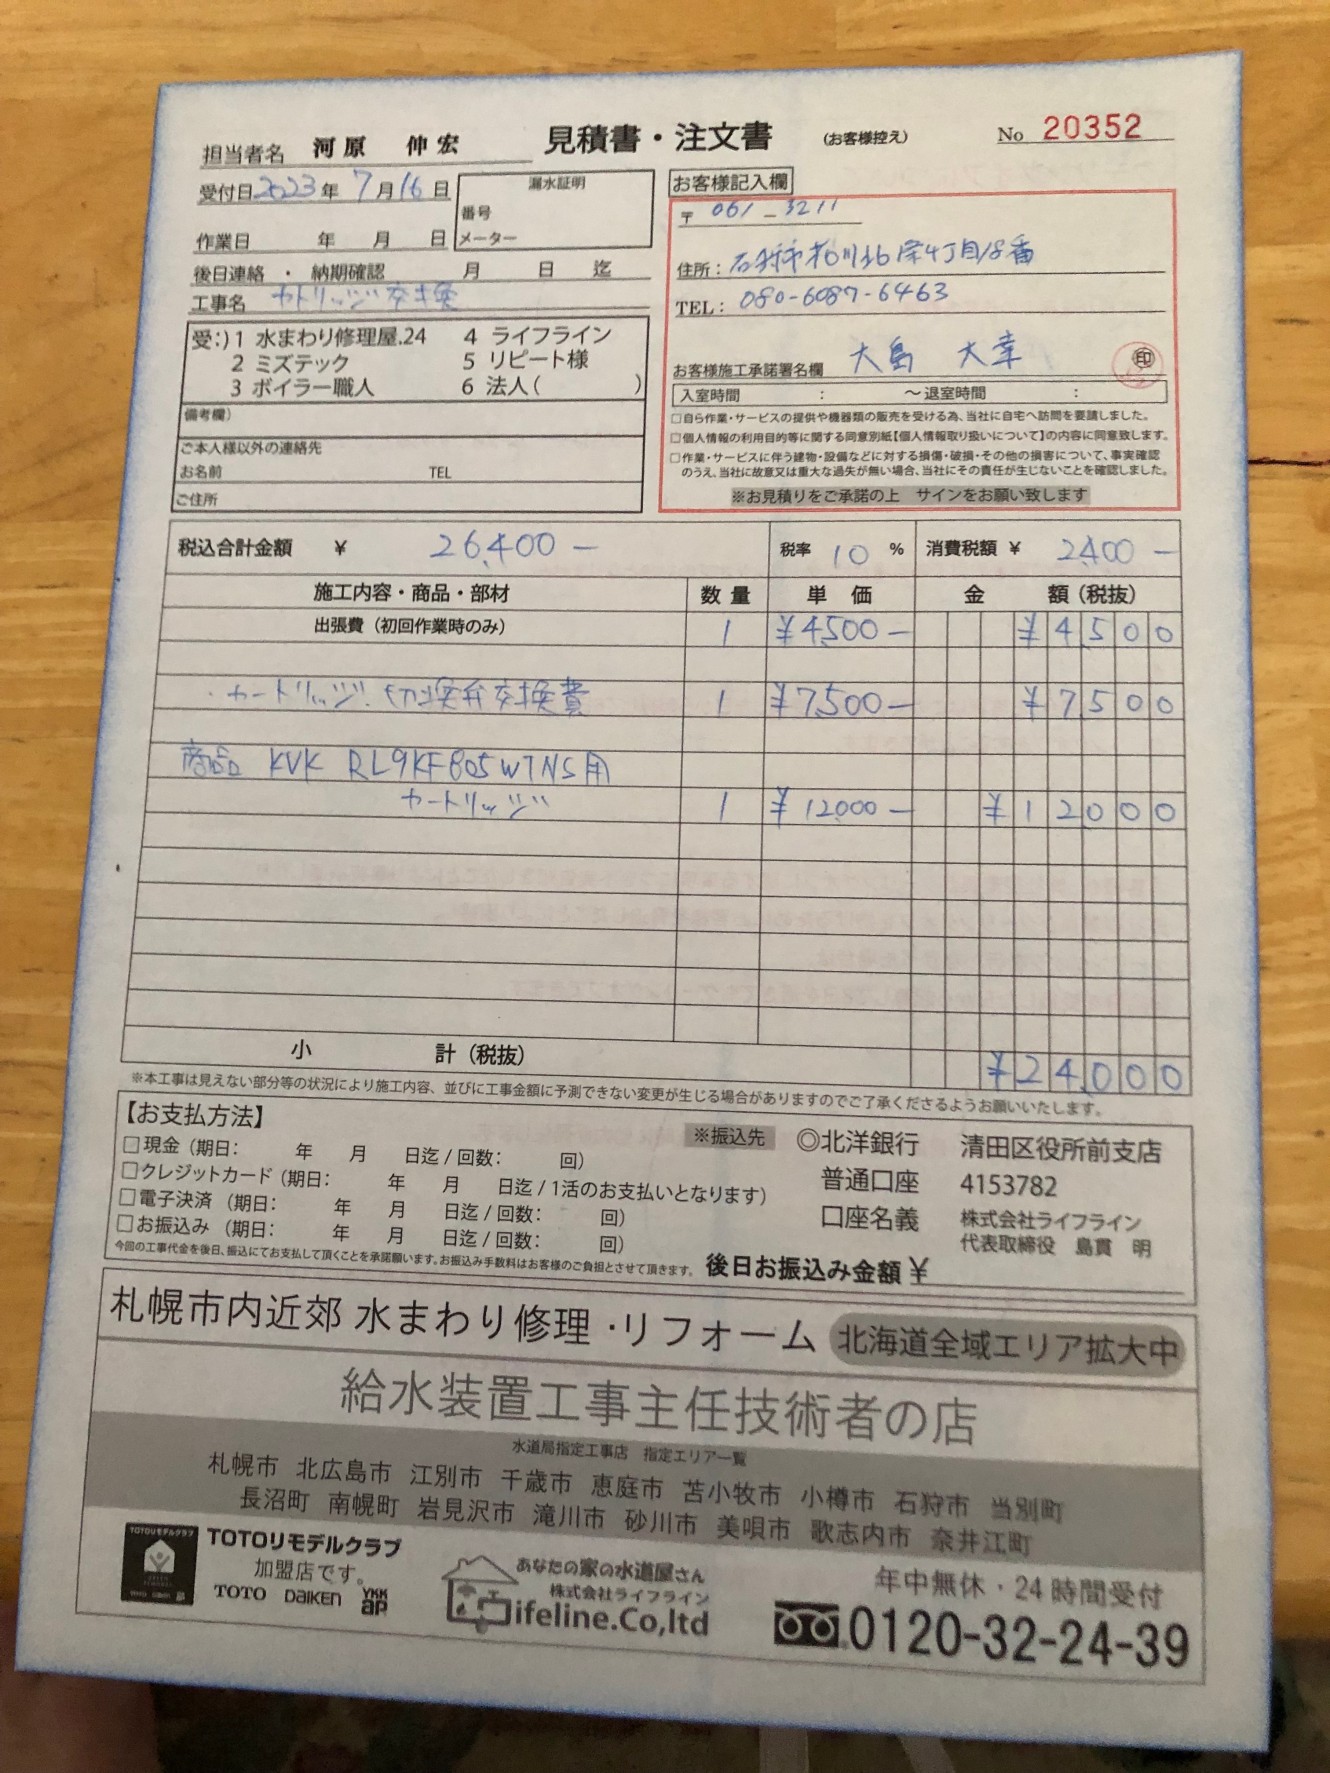 担当者名 河原 伸宏 見積書・注文書 (お客様控え) No 20352
受付日 2023年 7月16日
漏水証明
番号
メーター
作業日 年 月 日
後日連絡 ・ 納期確認 月 日 迄
工事名 カトリッジ交換
受:) 1 水まわり修理屋.24 4 ライフライン
2 ミズテック 5 リピート様
3 ボイラー職人 6 法人( )
備考欄)
ご本人様以外の連絡先
お名前 TEL
ご住所
お客様記入欄
〒 061-3211
住所: 石狩市花川北 条4丁目18番
TEL: 080-6087-6463
お客様施工承諾署名欄 大島 大幸 印
入室時間 : ～退室時間 :
□自ら作業・サービスの提供や機器類の販売を受ける為、当社に自宅へ訪問を要請しました。
□個人情報の利用目的等に関する同意別紙【個人情報取り扱いについて】の内容に同意致します。
□作業・サービスに伴う建物・設備などに対する損傷・破損・その他の損害について、事実確認
のうえ、当社に故意又は重大な過失が無い場合、当社にその責任が生じないことを確認しました。
※お見積りをご承諾の上 サインをお願い致します
税込合計金額 ¥ 26,400- 税率 10 % 消費税額 ¥ 2,400-
施工内容・商品・部材 数量 単価 金額(税抜)
出張費(初回作業時のみ) 1 ¥4,500- ¥4500
・カートリッジ.切換弁交換費 1 ¥7,500- ¥7500
商品 KVK RL9KF805WTNS用
カートリッジ 1 ¥12,000- ¥12000
小計(税抜) ¥24,000
※本工事は見えない部分等の状況により施工内容、並びに工事金額に予測できない変更が生じる場合がありますのでご了承くださるようお願いいたします。
【お支払方法】
□現金(期日: 年 月 日迄/回数: 回)
□クレジットカード(期日: 年 月 日迄/1活のお支払いとなります)
□電子決済(期日: 年 月 日迄/回数: 回)
□お振込み(期日: 年 月 日迄/回数: 回)
今回の工事代金を後日、振込にてお支払して頂くことを承諾願います。お振込み手数料はお客様のご負担とさせて頂きます。
※振込先 ◎北洋銀行 清田区役所前支店
普通口座 4153782
口座名義 株式会社ライフライン
代表取締役 島貫 明
後日お振込み金額 ¥
札幌市内近郊 水まわり修理・リフォーム 北海道全域エリア拡大中
給水装置工事主任技術者の店
水道局指定工事店 指定エリア一覧
札幌市 北広島市 江別市 千歳市 恵庭市 苫小牧市 小樽市 石狩市 当別町
長沼町 南幌町 岩見沢市 滝川市 砂川市 美唄市 歌志内市 奈井江町
TOTOリモデルクラブ
TOTOリモデルクラブ
加盟店です。
TOTO DAIKEN YKK ap
あなたの家の水道屋さん
株式会社ライフライン
Lifeline.Co,ltd
年中無休・24時間受付
0120-32-24-39